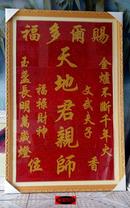 賜爾多福
金爐不斷千年火
文武夫子 香
天地君親師
福祿財神 位
玉盞長明萬歲燈